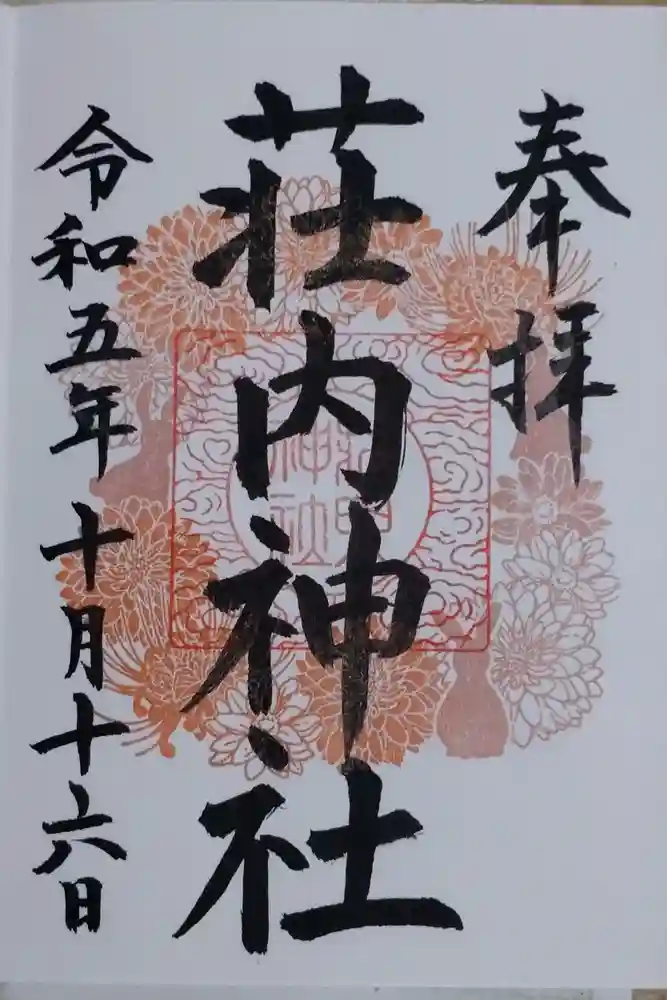 奉拝
荘内神社
令和五年十月十六日